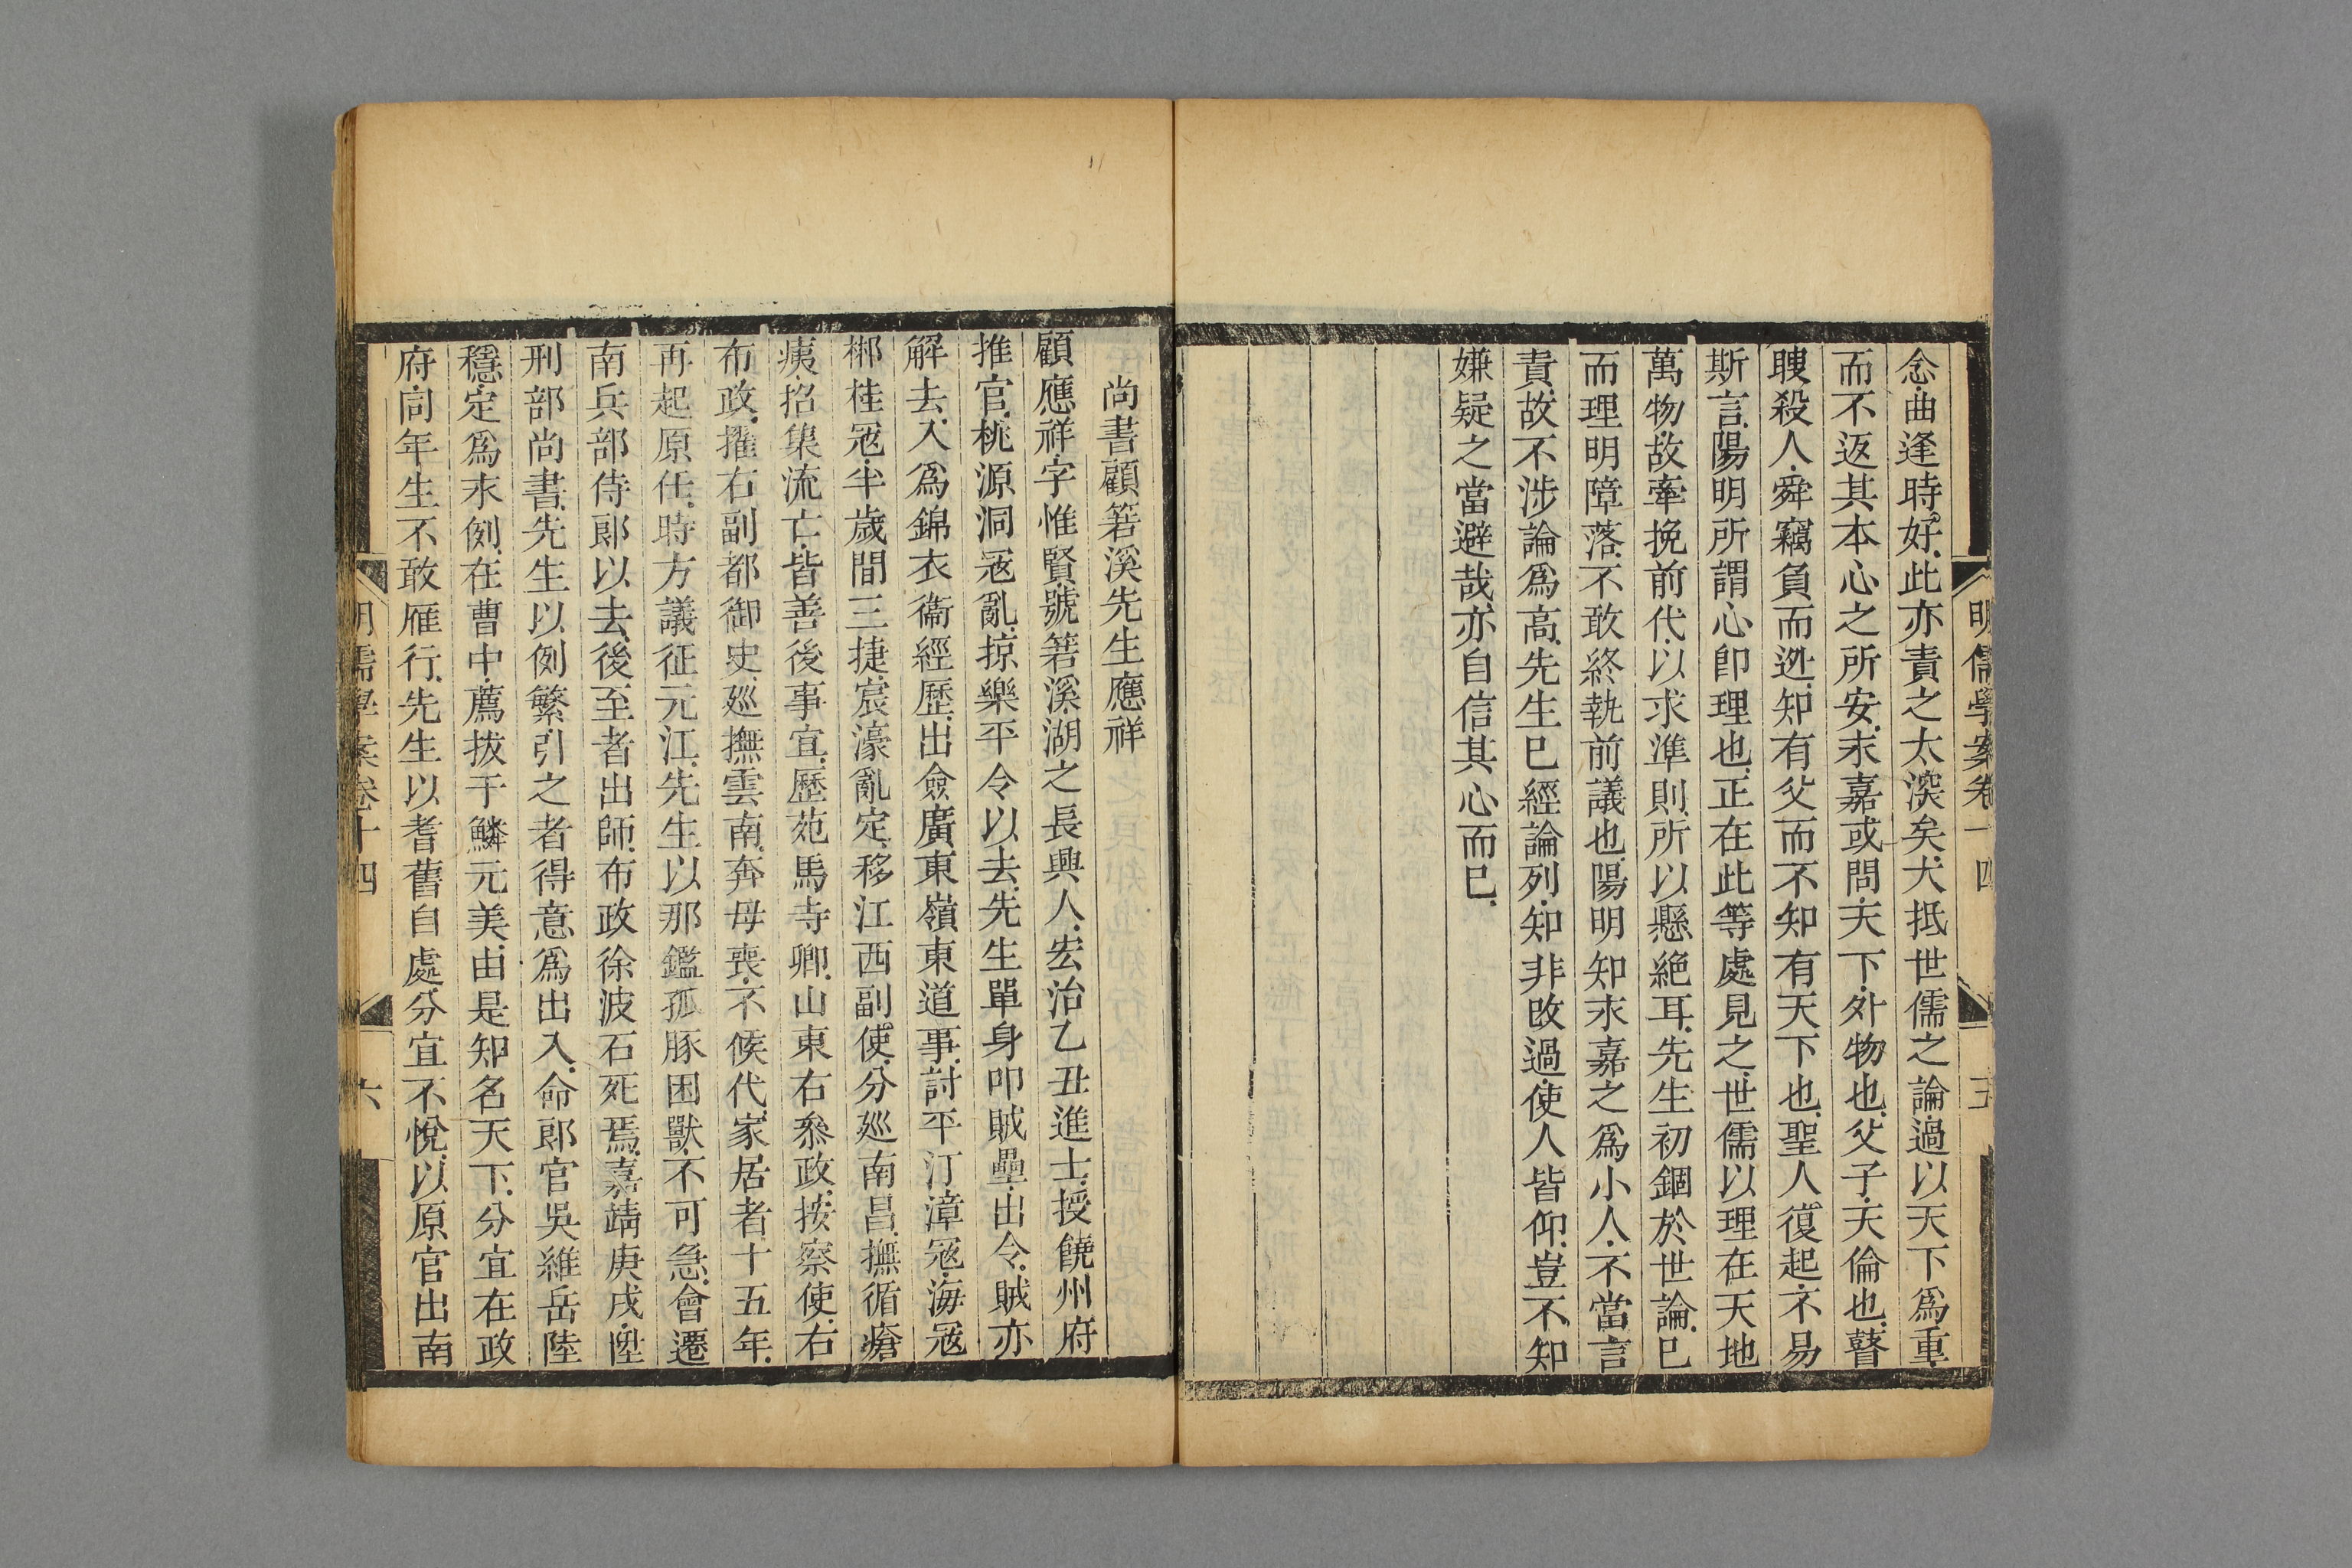 明儒學案卷十四
五
念.曲逢時.好.此亦責之太深矣.大抵世儒之論.過以天下爲重.
而不返其本心之所安.永嘉或問.天下.外物也.父子.天倫也.瞽
瞍殺人.舜竊負而逃.知有父而不知有天下也.聖人復起.不易
斯言.陽明所謂心即理也.正在此等處見之.世儒以理在天地
萬物.故牽挽前代.以求準則.所以懸絶耳.先生初錮於世論.已
而理明障落.不敢終執前議也.陽明知永嘉之爲小人.不當言
責.故不涉論爲高.先生已經論列.知非改過.使人皆仰.豈不知
嫌疑之當避哉.亦自信其心而已.
尚書顧箬溪先生應祥
顧應祥.字惟賢.號箬溪.湖之長興人.宏治乙丑進士.授饒州府
推官.桃源洞寇亂.掠樂平令以去.先生單身叩賊壘.出令.賊亦
解去.入爲錦衣衞經歷.出僉廣東嶺東道事.討平汀漳寇.海寇
郴桂寇.半歲間三捷.宸濠亂定.移江西副使.分巡南昌.撫循瘡
痍.招集流亡.皆善後事宜.歷苑馬寺卿.山東右叅政.按察使.右
布政.擢右副都御史.廵撫雲南.奔母喪.不候代.家居者十五年.
再起原任.時方議征元江.先生以那鑑孤豚困獸.不可急.會遷
南兵部侍郎以去.後至者出師.布政徐波石死焉.嘉靖庚戌.陞
刑部尚書.先生以例繁.引之者得意爲出入.命郎官吳維岳陸
穩.定爲永例.在曹中.薦拔于鱗元美.由是知名天下.分宜在政
府.同年生不敢雁行.先生以耆舊自處.分宜不悅.以原官出南
明儒學案卷十四
六